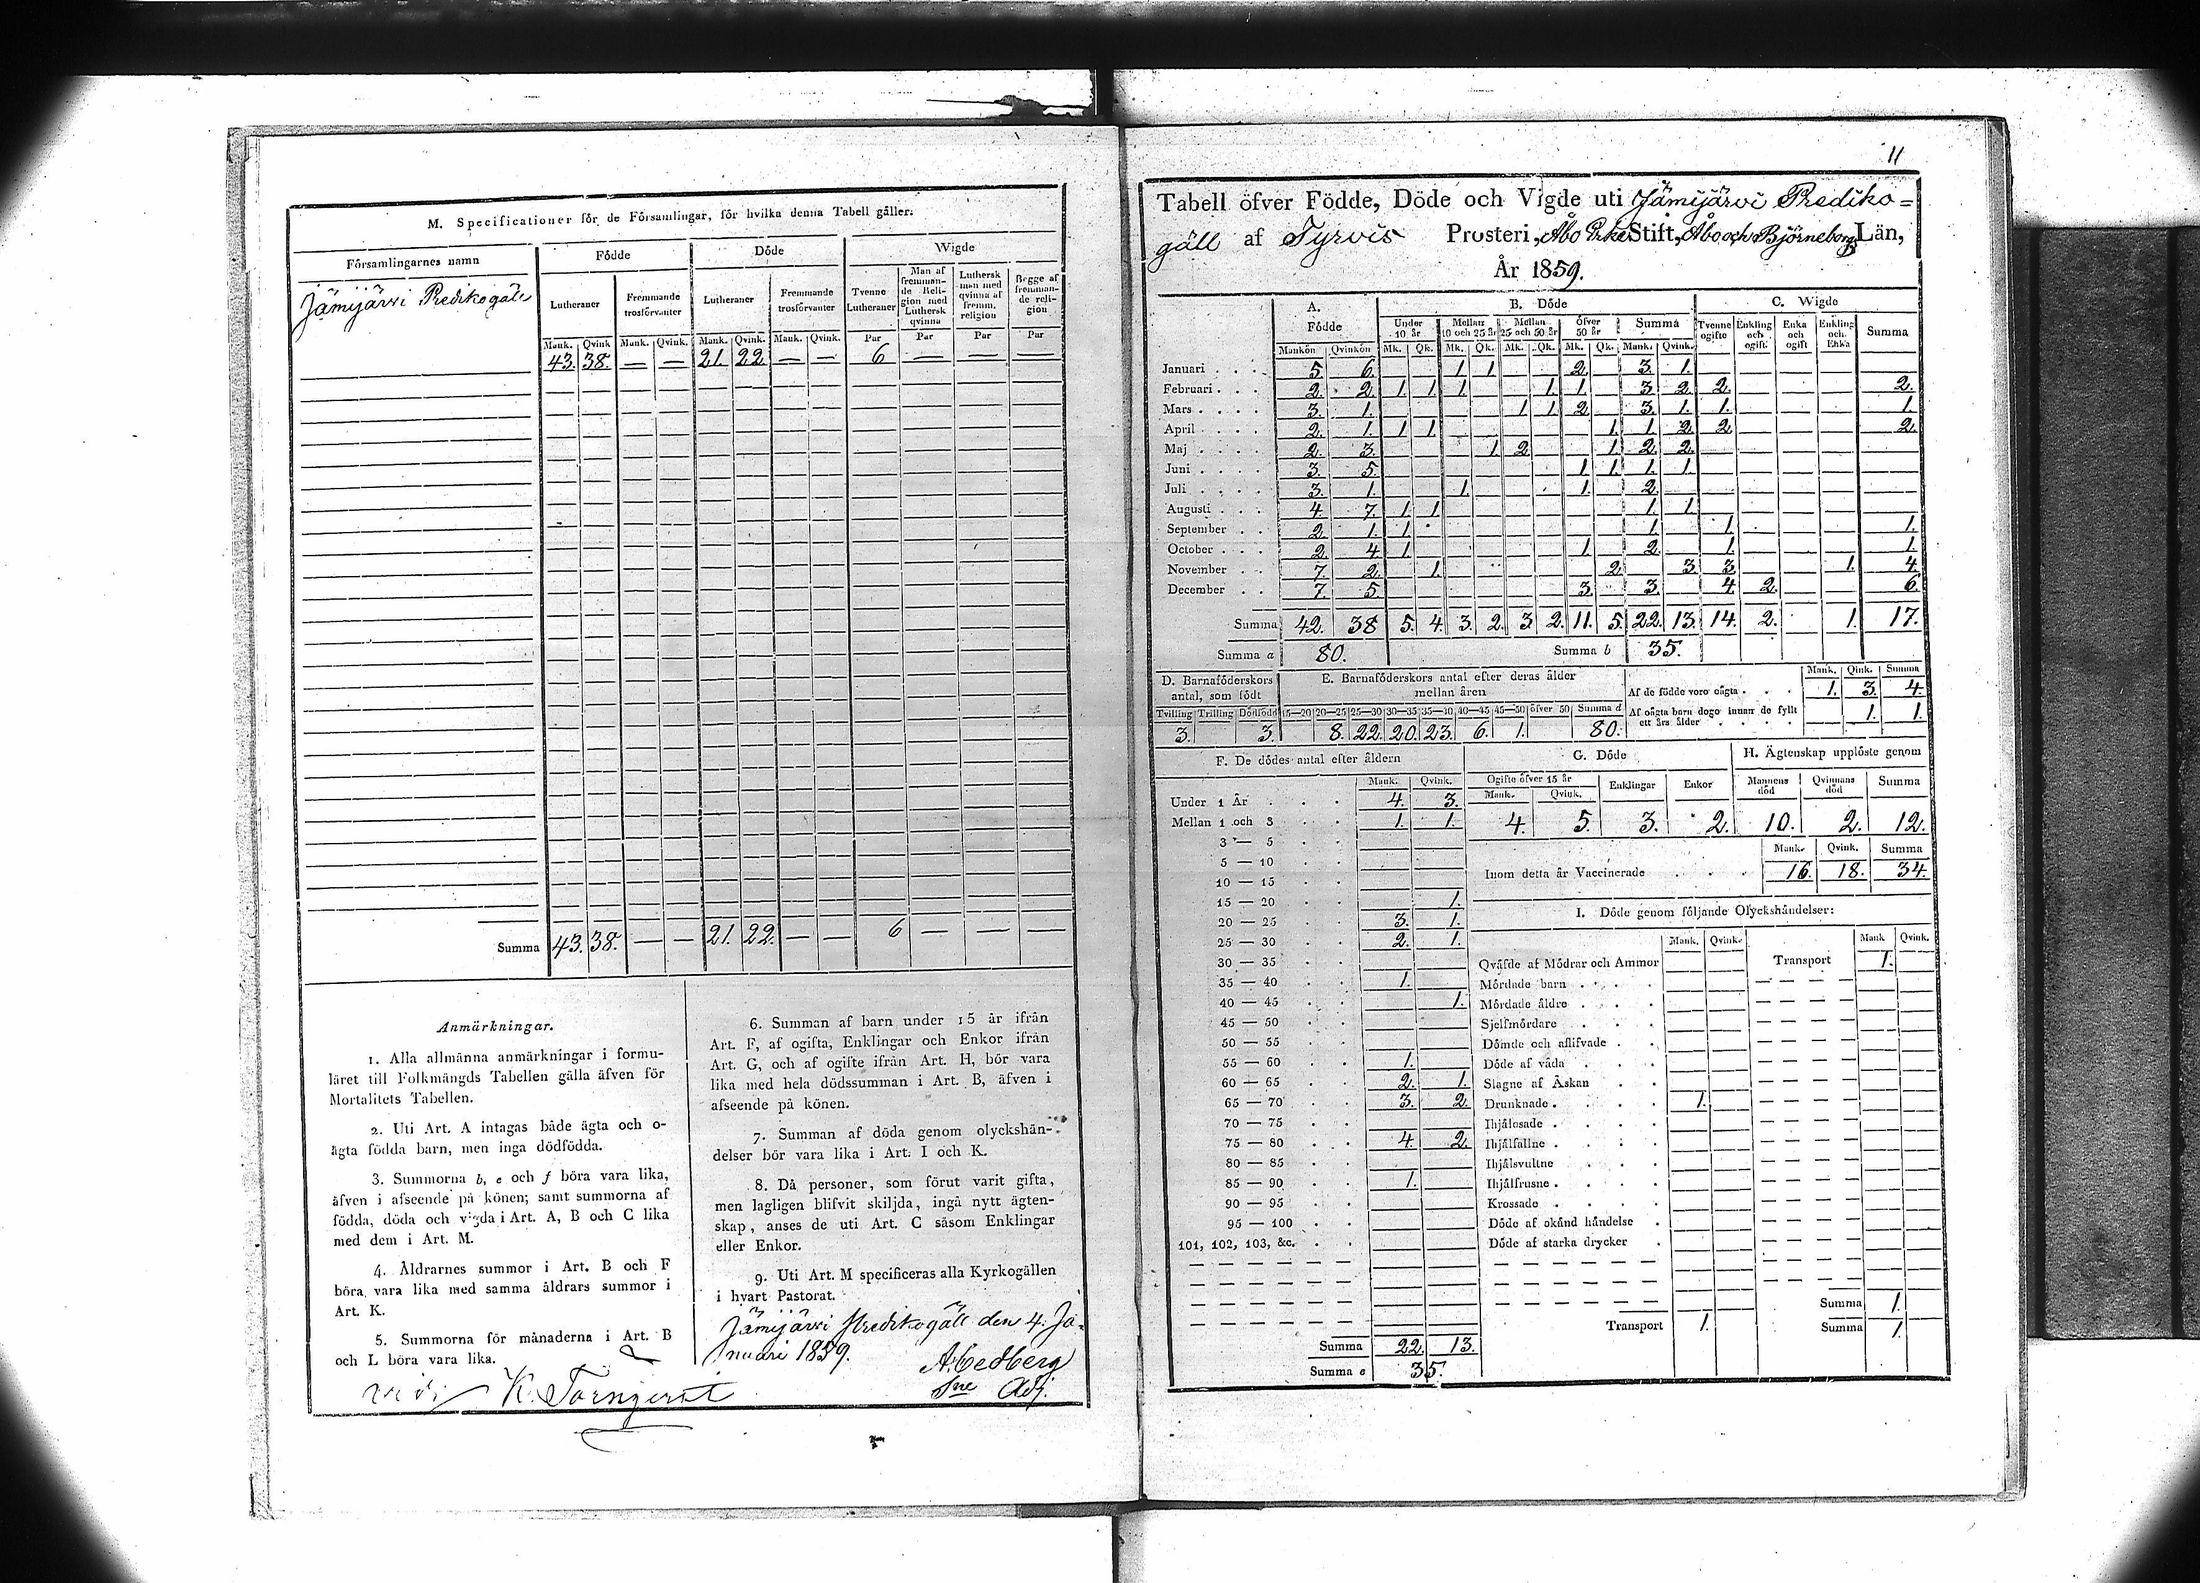 M. Specificationer för de Församlingar, för hvilka denna Tabell gäller:
Församlingarnes namn Födde Döde Wigde
Lutheraner Fremmande trosförvanter Lutheraner Fremmande trosförvanter Tvenne Lutheraner Man af fremmande Religion med Luthersk qvinna Luthersk man med qvinna af fremm. religion Begge af fremmande religion
Mank. Qvink Mank. Qvink. Mank. Qvink. Mank. Qvink. Par Par Par Par
Jämijärvi Predikogäll 43. 38. — — 21. 22. — — 6 — — —
Summa 43. 38. — — 21. 22. — — 6 — — —
Anmärkningar.
1. Alla allmänna anmärkningar i formu-
läret till Folkmängds Tabellen gälla äfven för
Mortalitets Tabellen.
2. Uti Art. A intagas både ägta och o-
ägta födda barn, men inga dödfödda.
3. Summorna b, e och f böra vara lika,
äfven i afseende på könen; samt summorna af
födda, döda och vigda i Art. A, B och C lika
med dem i Art. M.
4. Åldrarnes summor i Art. B och F
böra vara lika med samma åldrars summor i
Art. K.
5. Summorna för månaderna i Art. B
och L böra vara lika.
6. Summan af barn under 15 år ifrån
Art. F, af ogifta, Enklingar och Enkor ifrån
Art. G, och af ogifte ifrån Art. H, bör vara
lika med hela dödssumman i Art. B, äfven i
afseende på könen.
7. Summan af döda genom olyckshän-
delser bör vara lika i Art. I och K.
8. Då personer, som förut varit gifta,
men lagligen blifvit skiljda, ingå nytt ägten-
skap, anses de uti Art. C såsom Enklingar
eller Enkor.
9. Uti Art. M specificeras alla Kyrkogällen
i hvart Pastorat.
Jämijärvi Predikogäll den 4. Ja-
nuari 1859.
A. Cedberg
Adj.
vidi K. Törnqvist
11
Tabell öfver Födde, Döde och Vigde uti Jämijärvi Prediko=
gäll af Tyrvis Prosteri, Åbo Erke Stift, Åbo och Björneborgs Län,
År 1859.
A. Födde B. Döde C. Wigde
Under 10 år Mellan 10 och 25 år Mellan 25 och 50 år Öfver 50 år Summa Tvenne ogifte Enkling och ogift. Enka och ogift Enkling och Enka Summa
Mankön Qvinkön Mk. Qk. Mk. Qk. Mk. Qk. Mk. Qk. Mank. Qvink.
Januari 5. 6. 1. 1. 2. 3. 1.
Februari 2. 2. 1. 1. 1. 1. 1. 3. 2. 2. 2.
Mars 3. 1. 1. 1. 2. 3. 1. 1. 1.
April 2. 1. 1. 1. 1. 1. 2. 2. 2.
Maj 2. 3. 1. 2. 1. 2. 2.
Juni 3. 5. 1. 1. 1. 1.
Juli 3. 1. 1. 1. 2.
Augusti 4. 7. 1. 1. 1. 1.
September 2. 1. 1. 1. 1. 1.
October 2. 4. 1. 1. 2. 1. 1.
November 7. 2. 1. 2. 3. 3. 1. 4.
December 7. 5. 3. 3. 4. 2. 6.
Summa 42. 38 5. 4. 3. 2. 3. 2. 11. 5. 22. 13. 14. 2. 1. 17.
Summa a 80. Summa b 35.
D. Barnaföderskors antal, som födt
Tvilling Trilling Dödfödd
3. 3.
E. Barnaföderskors antal efter deras ålder mellan åren
15—20 20—25 25—30 30—35 35—40 40—45 45—50 öfver 50 Summa d
8. 22. 20. 23. 6. 1. 80.
Mank. Qink. Summa
Af de födde voro oägta 1. 3. 4.
Af oägta barn dogo innan de fyllt ett års ålder 1. 1.
F. De dödes antal efter åldern
Mank. Qvink.
Under 1 År 4. 3.
Mellan 1 och 3 1. 1.
3 — 5
5 — 10
10 — 15
15 — 20 1.
20 — 25 3. 1.
25 — 30 2. 1.
30 — 35
35 — 40 1.
40 — 45 1.
45 — 50
50 — 55
55 — 60 1.
60 — 65 2. 1.
65 — 70 3. 2.
70 — 75
75 — 80 4. 2.
80 — 85
85 — 90 1.
90 — 95
95 — 100
101, 102, 103, &c.
Summa 22. 13.
Summa e 35.
G. Döde
Ogifte öfver 15 år Enklingar Enkor
Mank. Qvink.
4. 5. 3. 2.
H. Ägtenskap upplöste genom
Mannens död Qvinnans död Summa
10. 2. 12.
Mank. Qvink. Summa
Inom detta år Vaccinerade 16. 18. 34.
I. Döde genom följande Olyckshändelser:
Mank. Qvink. Mank Qvink.
Qväfde af Mödrar och Ammor Transport 1.
Mördade barn
Mördade äldre
Sjelfmördare
Dömde och aflifvade
Döde af våda
Slagne af Åskan
Drunknade 1.
Ihjälosade
Ihjälfallne
Ihjälsvultne
Ihjälfrusne
Krossade
Döde af okänd händelse
Döde af starka drycker
Summa 1.
Transport 1. Summa 1.